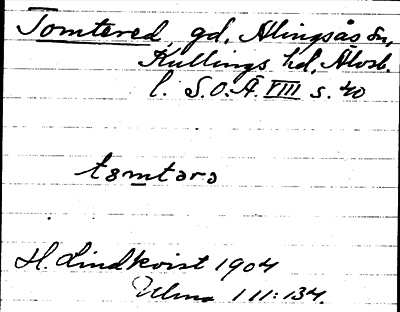 Tomtered, gd, Alingsås sn,
Kullings hd, Älvsb.
l. S.O.Ä. VIII s. 40
tomtərə
H. Lindkvist 1904
Ulma 111:134.